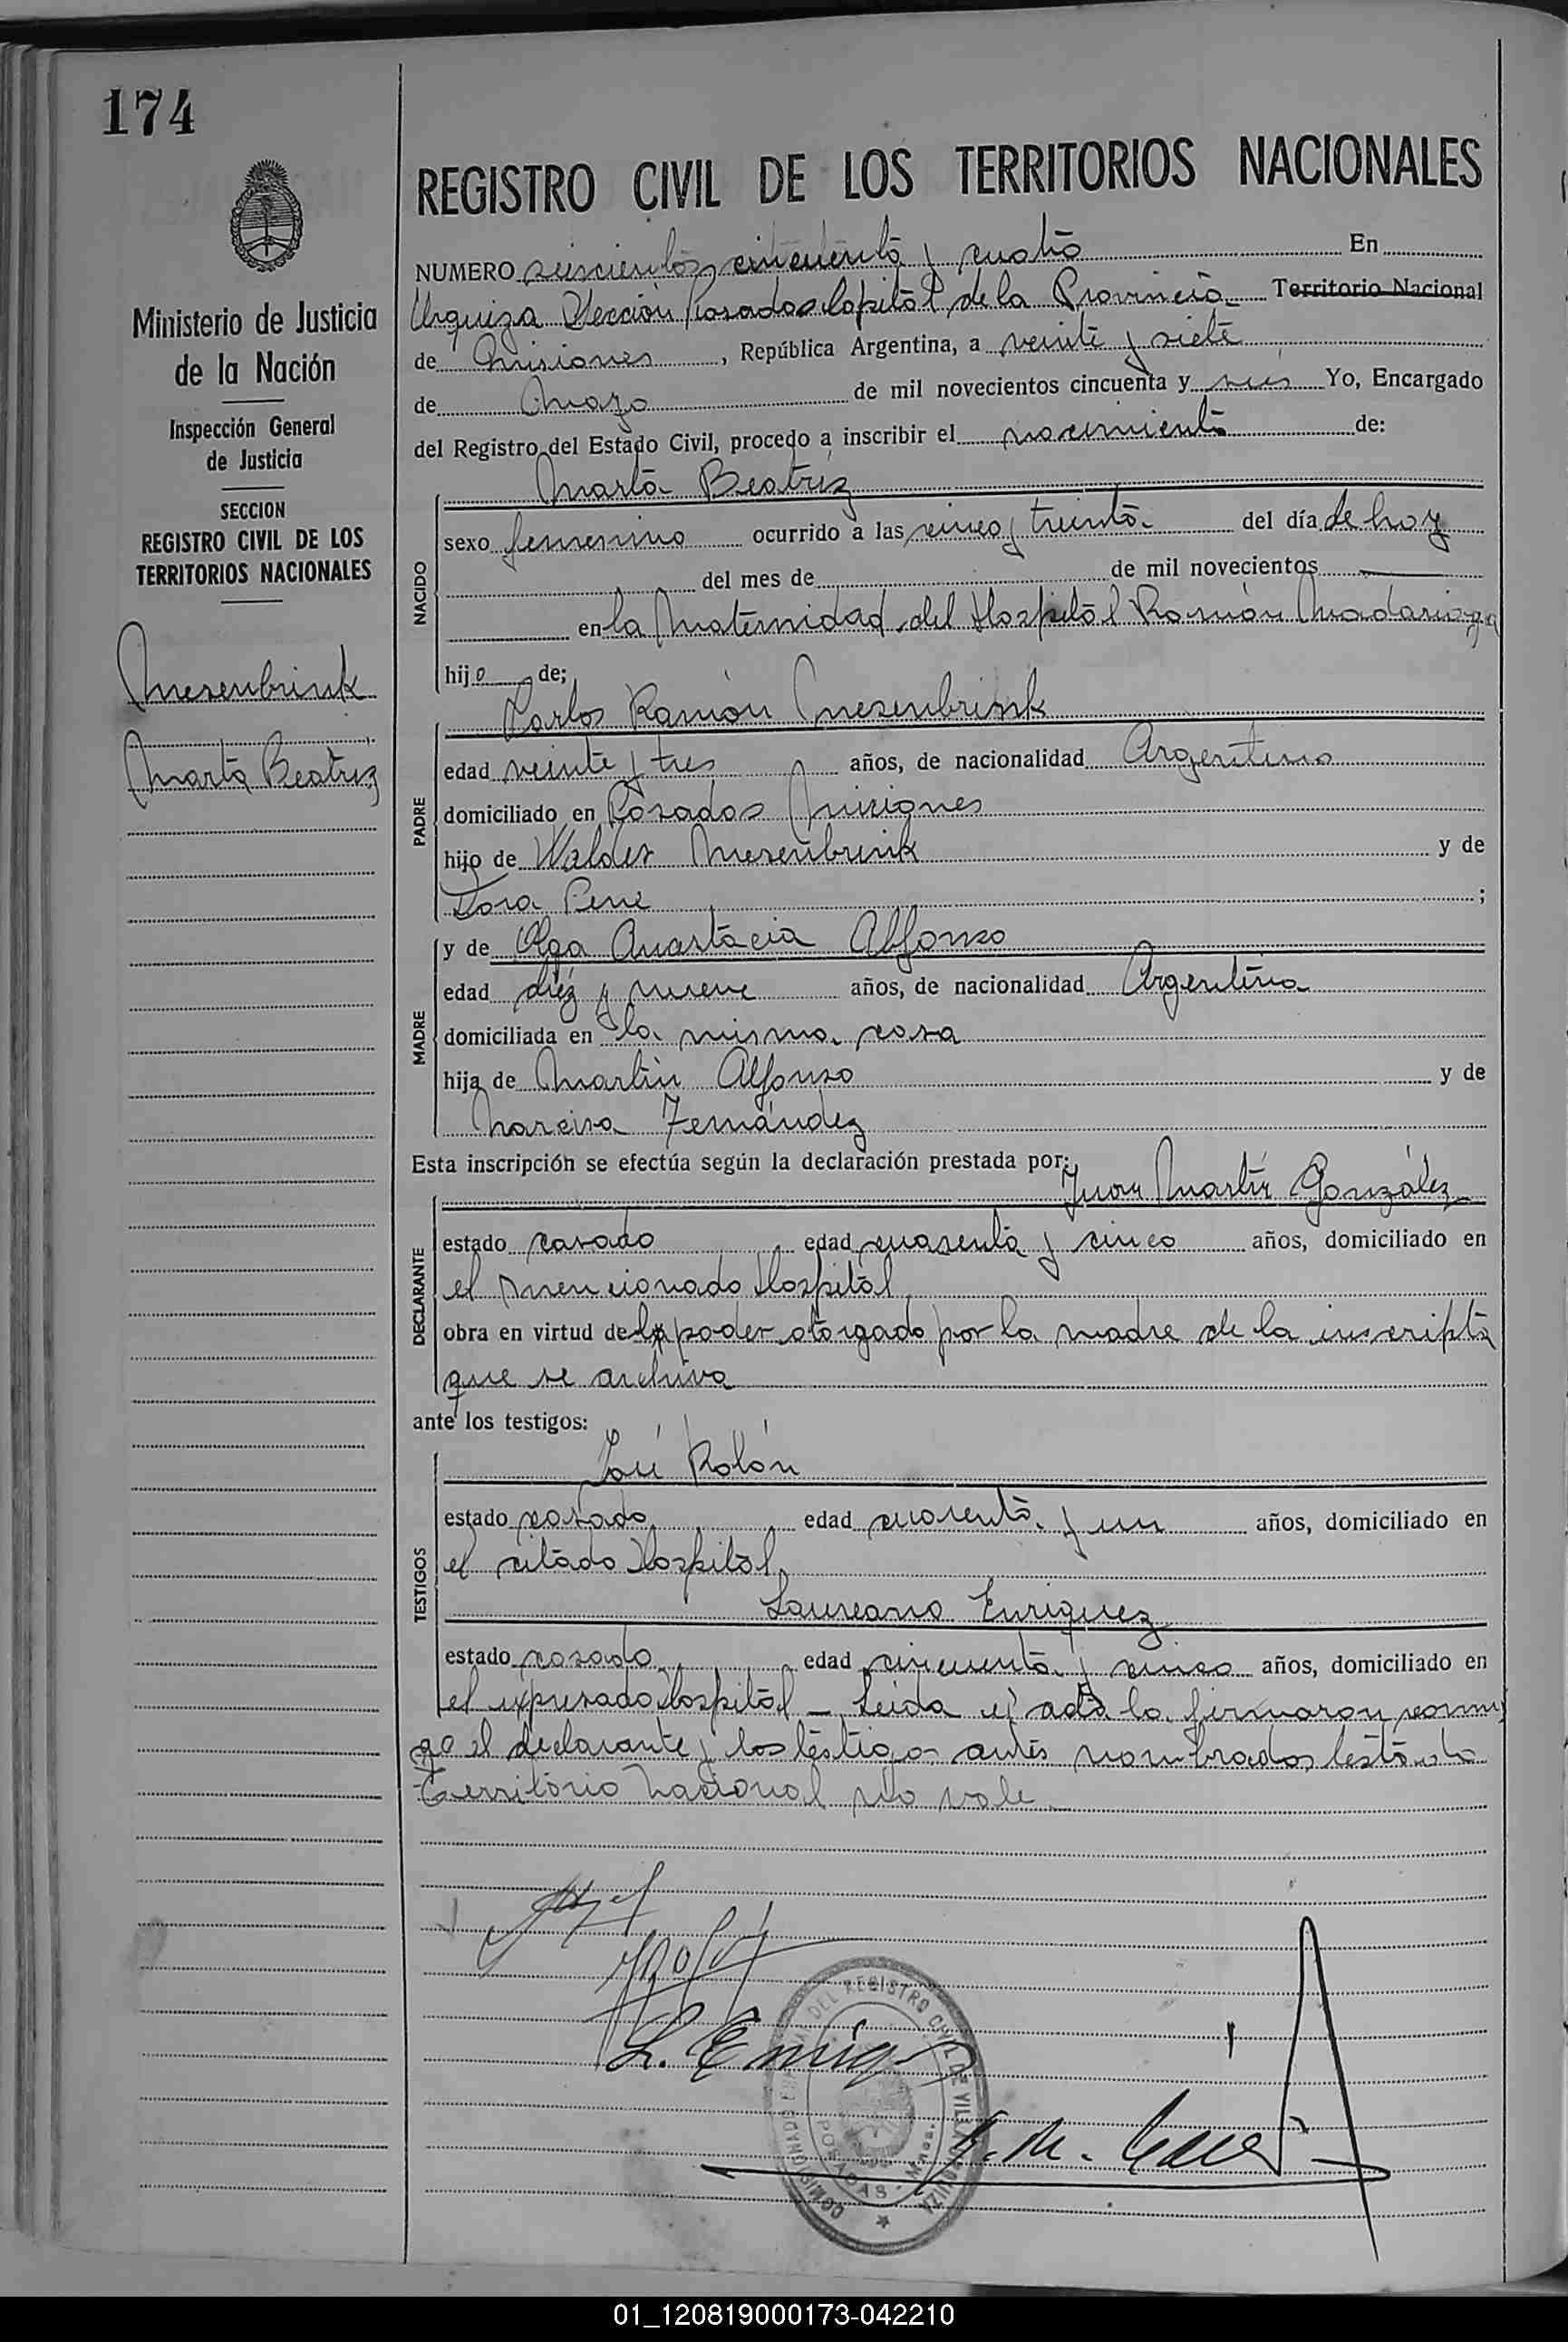 174
REGISTRO CIVIL DE LOS TERRITORIOS NACIONALES
Ministerio de Justicia
de la Nación
Inspección General
de Justicia
SECCION
REGISTRO CIVIL DE LOS
TERRITORIOS NACIONALES
Mesenbrink
Marta Beatriz
NUMERO seiscientos cincuenta y cuatro En
Urquiza Sección Posadas Capital de la Provincia Territorio Nacional
de Misiones, República Argentina, a veinte y siete
de Mayo de mil novecientos cincuenta y seis Yo, Encargado
del Registro del Estado Civil, procedo a inscribir el nacimiento de:
Marta Beatriz
NACIDO
sexo femenino ocurrido a las cinco y treinta del día de hoy
del mes de de mil novecientos
en la Maternidad del Hospital Ramón Madariaga
hij a de;
Carlos Ramón Mesenbrink
PADRE
edad veinte y tres años, de nacionalidad Argentino
domiciliado en Posadas Misiones
hijo de Mesenbrink y de
;
y de Olga Anastacia Alfonso
MADRE
edad diez y nueve años, de nacionalidad Argentina
domiciliada en la misma casa
hija de Martín Alfonso y de
Narcisa Fernández
Esta inscripción se efectúa según la declaración prestada por:
Juan Martín González
DECLARANTE
estado casado edad cuarenta y cinco años, domiciliado en
el mencionado Hospital
obra en virtud de poder otorgado por la madre de la inscripta
que se archiva
ante los testigos:
José Rolón
TESTIGOS
estado casado edad cuarenta y un años, domiciliado en
el citado Hospital
Laureano Enriquez
estado casado edad cincuenta y cinco años, domiciliado en
el expresado Hospital – Leida el acta la firmaron conmi
go el declarante y los testigos antes nombrados testado
Territorio Nacional no vale
L. Enriq
DEL REGISTRO CIVIL DE VILLA URQUIZA
COMISIONADO
POSADAS - Mnes.
01_120819000173-042210